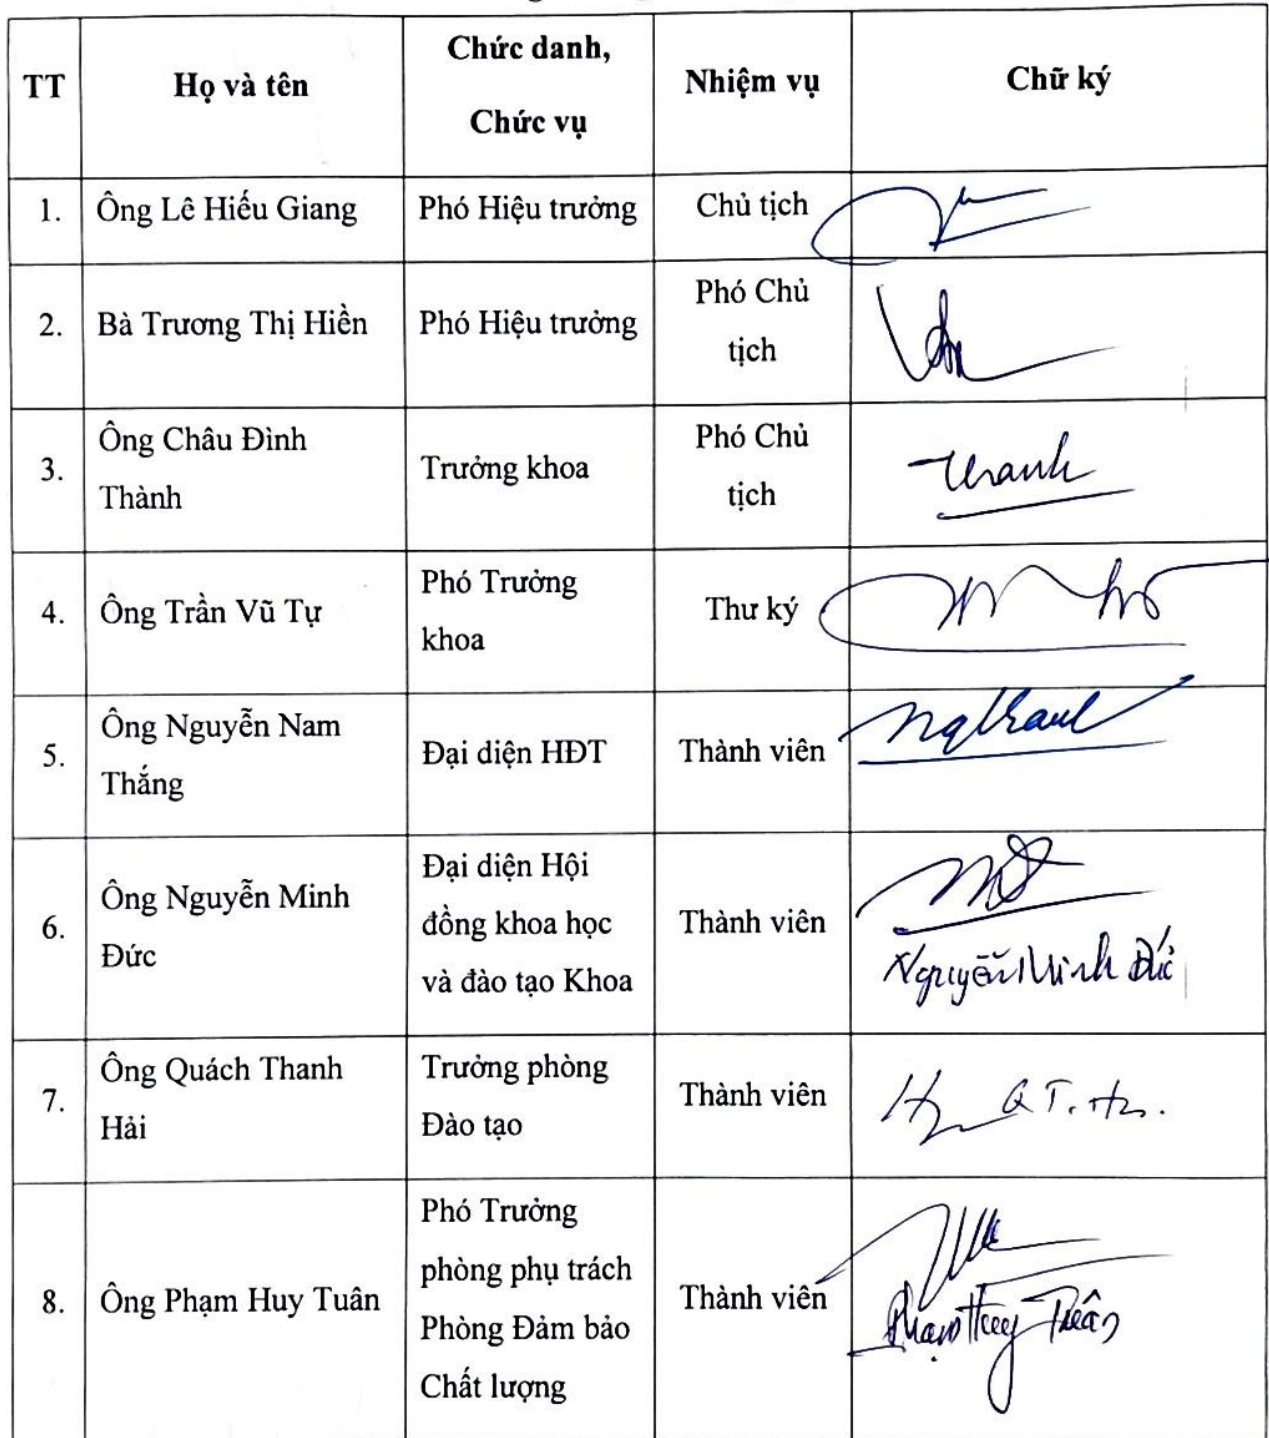 TT
Họ và tên
Chức danh,
Chức vụ
Nhiệm vụ
Chữ ký
1.
Ông Lê Hiếu Giang
Phó Hiệu trưởng
Chủ tịch
2.
Bà Trương Thị Hiền
Phó Hiệu trưởng
Phó Chủ
tịch
3.
Ông Châu Đình
Thành
Trưởng khoa
Phó Chủ
tịch
Thanh
4.
Ông Trần Vũ Tự
Phó Trưởng
khoa
Thư ký
5.
Ông Nguyễn Nam
Thắng
Đại diện HĐT
Thành viên
6.
Ông Nguyễn Minh
Đức
Đại diện Hội
đồng khoa học
và đào tạo Khoa
Thành viên
Nguyễn Minh Đức
7.
Ông Quách Thanh
Hải
Trưởng phòng
Đào tạo
Thành viên
8.
Ông Phạm Huy Tuân
Phó Trưởng
phòng phụ trách
Phòng Đảm bảo
Chất lượng
Thành viên
Phạm Huy Tuân